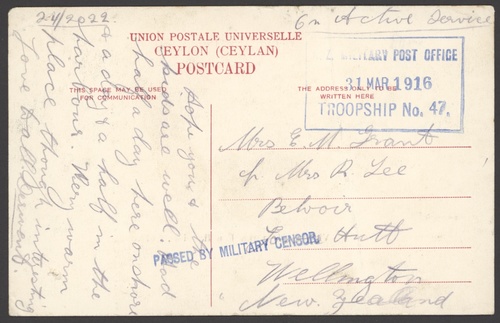 24/2022
On Active Service
UNION POSTALE UNIVERSELLE
CEYLON (CEYLAN)
POSTCARD
THIS SPACE MAY BE USED
FOR COMMUNICATION
THE ADDRESS ONLY TO BE
WRITTEN HERE
MILITARY POST OFFICE
31 MAR 1916
TROOPSHIP No. 47.
Hope you & the
kids are well. Had
half a day here on shore
& a day & a half in the
harbour. Very warm
place though interesting
Love to all
Mrs E. M. Grant
c/o Mrs R. Lee
Belvoir
Hutt
Wellington
New Zealand
PASSED BY MILITARY CENSOR.